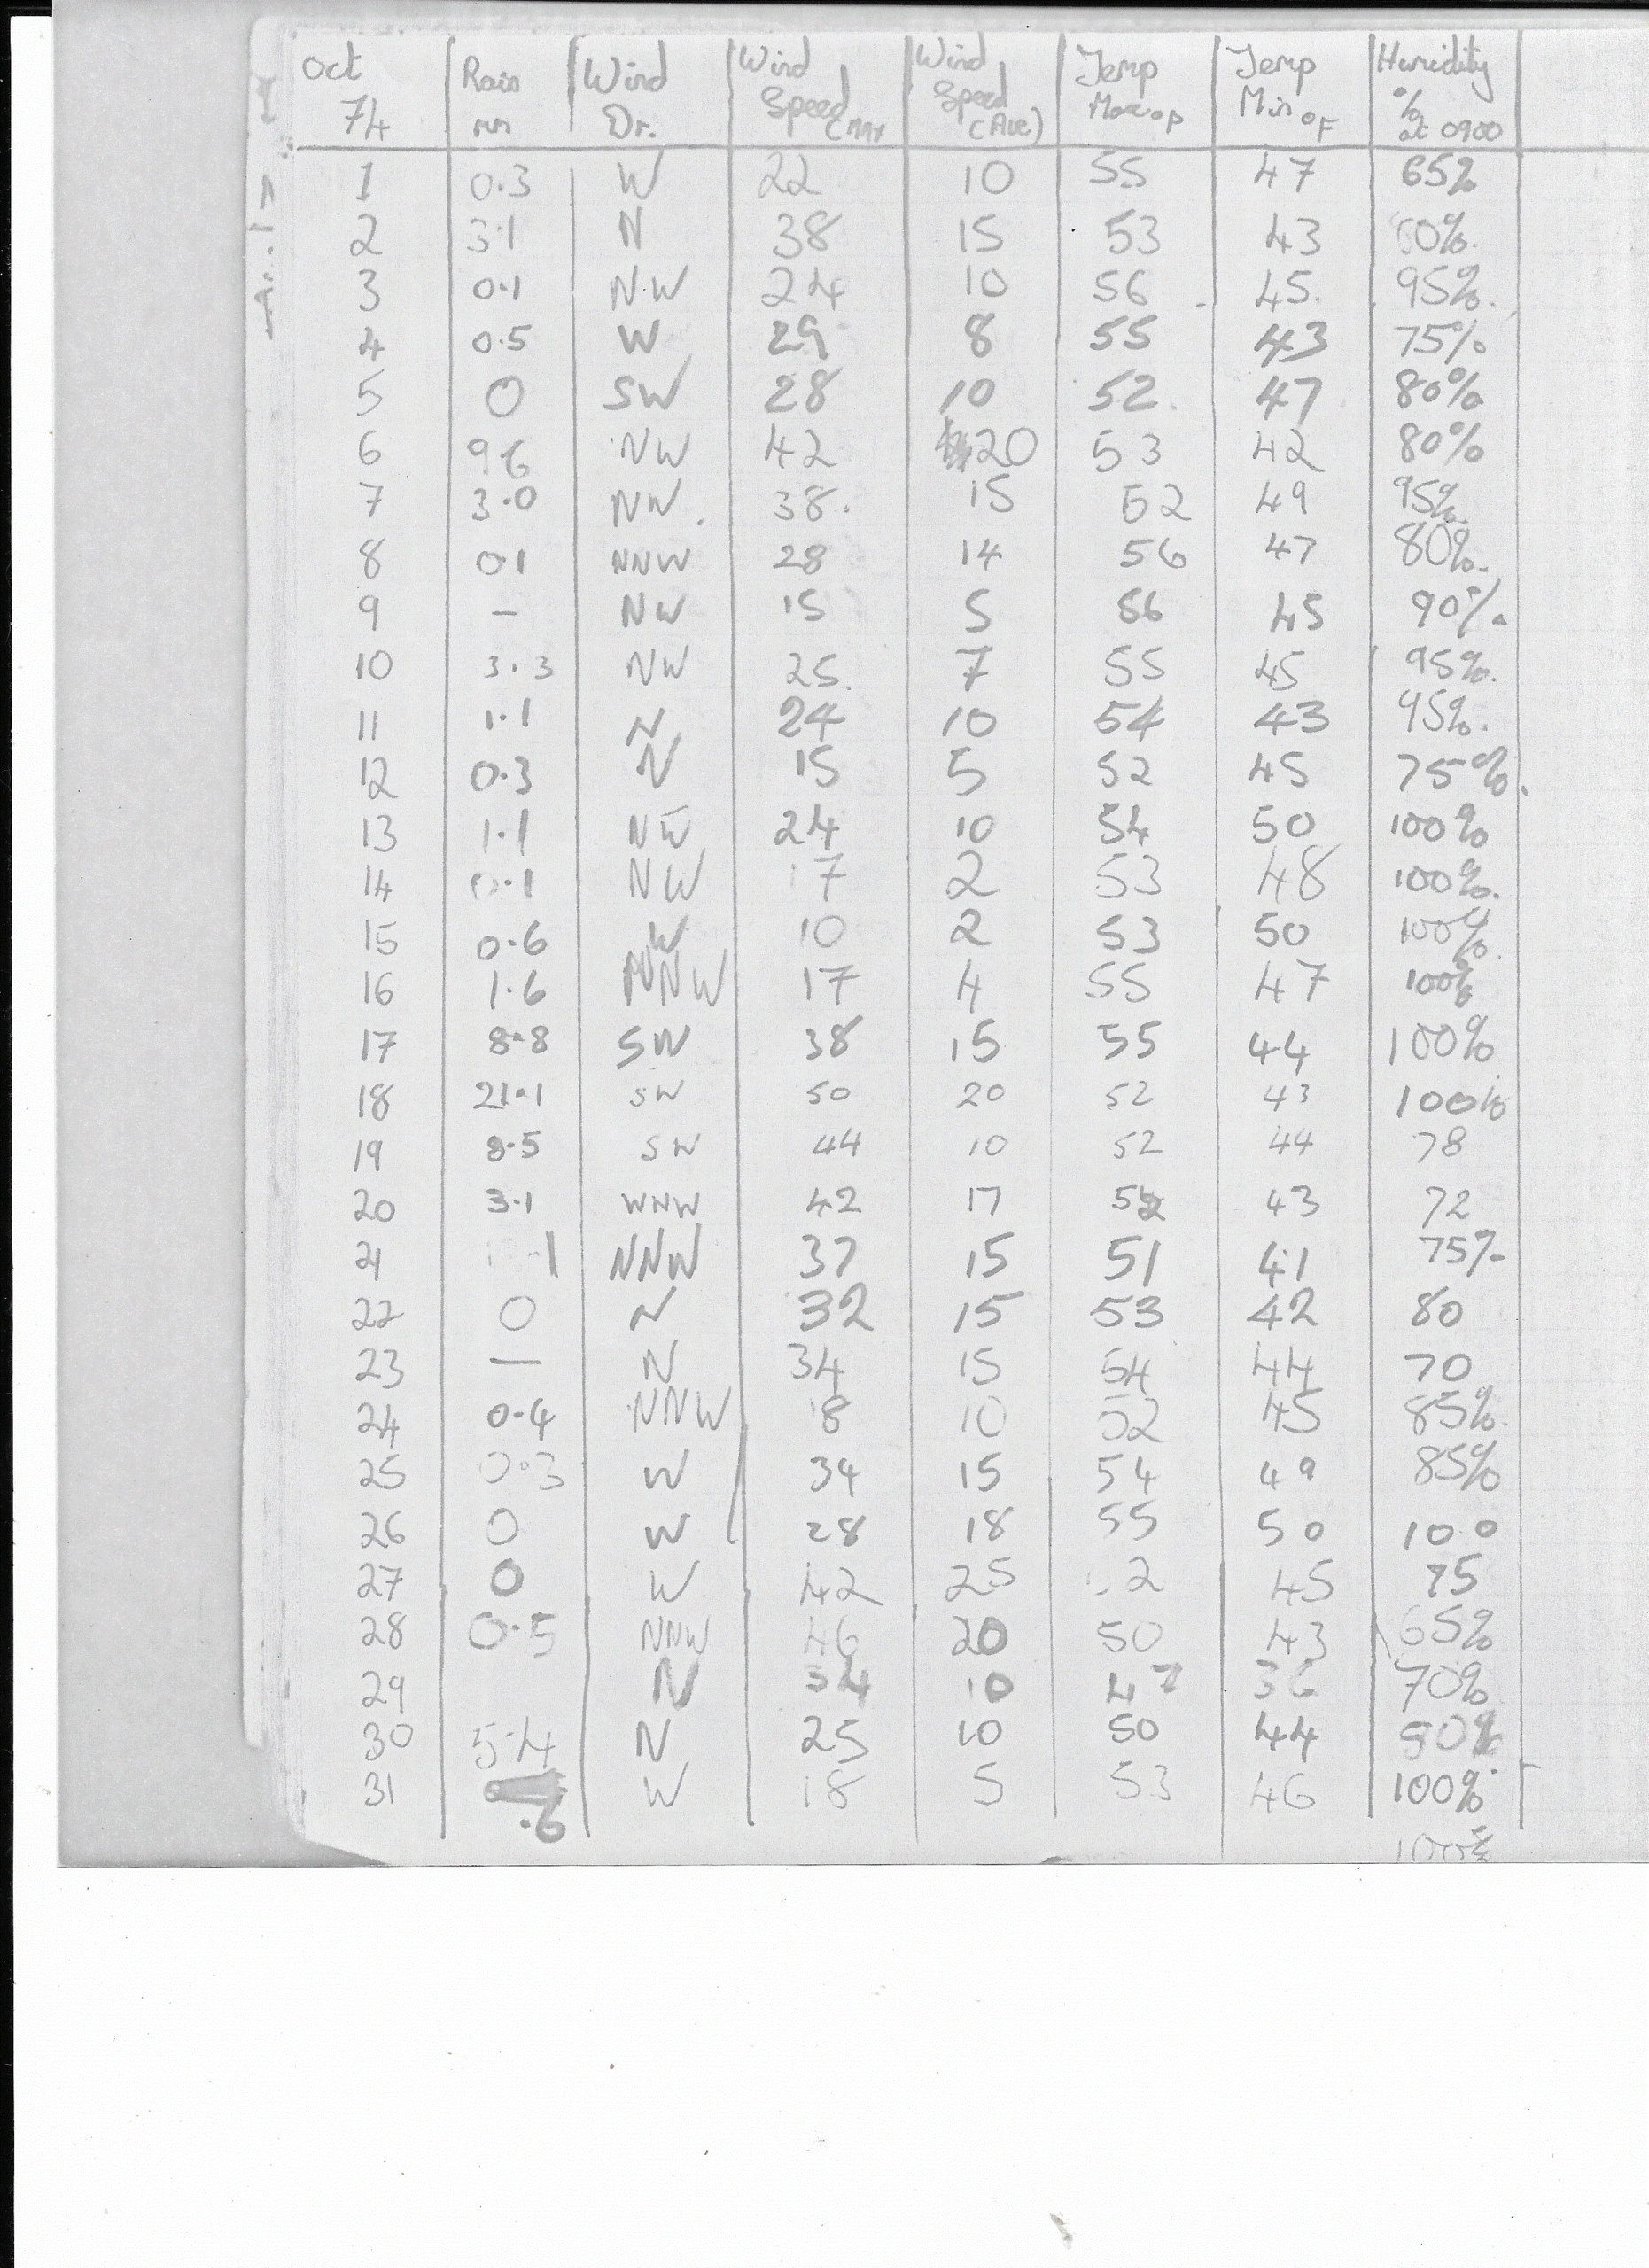 Oct 74 Rain mm Wind Dr. Wind Speed (MAX Wind Speed (Ave) Temp Max °F Temp Min °F Humidity % at 0900
1 0.3 W 22 10 55 47 65%
2 3.1 N 38 15 53 43 0%.
3 0.1 NW 24 10 56 45 95%.
4 0.5 W 29 8 55 43 75%
5 0 SW 28 10 52 47 80%
6 9.6 NW 42 20 53 42 80%
7 3.0 NW 38 15 52 49 95%.
8 0.1 NNW 28 14 56 47 80%.
9 – NW 15 5 56 45 90%
10 3.3 NW 25 7 55 45 95%.
11 1.1 N 24 10 54 43 95%.
12 0.3 N 15 5 52 45 75%.
13 1.1 24 10 54 50 100%
14 0.1 NW 17 2 53 48 100%.
15 0.6 W 10 2 53 50 100%.
16 1.6 NNW 17 4 55 47 100%
17 8.8 SW 38 15 55 44 100%
18 21.1 SW 50 20 52 43 100%
19 8.5 SW 44 10 52 44 78
20 3.1 WNW 42 17 52 43 72
21 NNW 37 15 51 41 75%
22 0 N 32 15 53 42 80
23 – N 34 15 54 44 70
24 0.4 NNW 18 10 52 45 85%.
25 0.3 W 34 15 54 49 85%
26 0 W 28 18 55 50 100
27 0 W 42 25 52 45 75
28 0.5 NNW 46 20 50 43 65%
29 N 34 10 47 36 70%
30 5.4 N 25 10 50 44 90%
31 .6 W 18 5 53 46 100%
100%